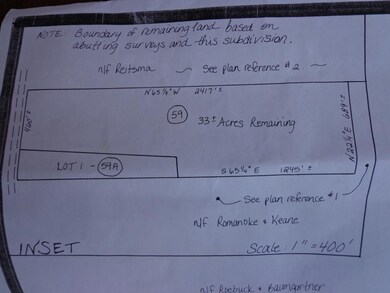 NOTE: Boundary of remaining land based on
abutting surveys and this subdivision.
n/f Reitsma ~ See plan reference #2 ~
N 65¼° W 2417' ±
460' ±
59
33± Acres Remaining
N 22¾° E 689' ±
LOT 1 - 59A
S 65¼° E 1245' ±
See plan reference #1
n/f Romanoke & Keane
INSET
Scale: 1" = 400'
n/f Roebuck & Baumgartner